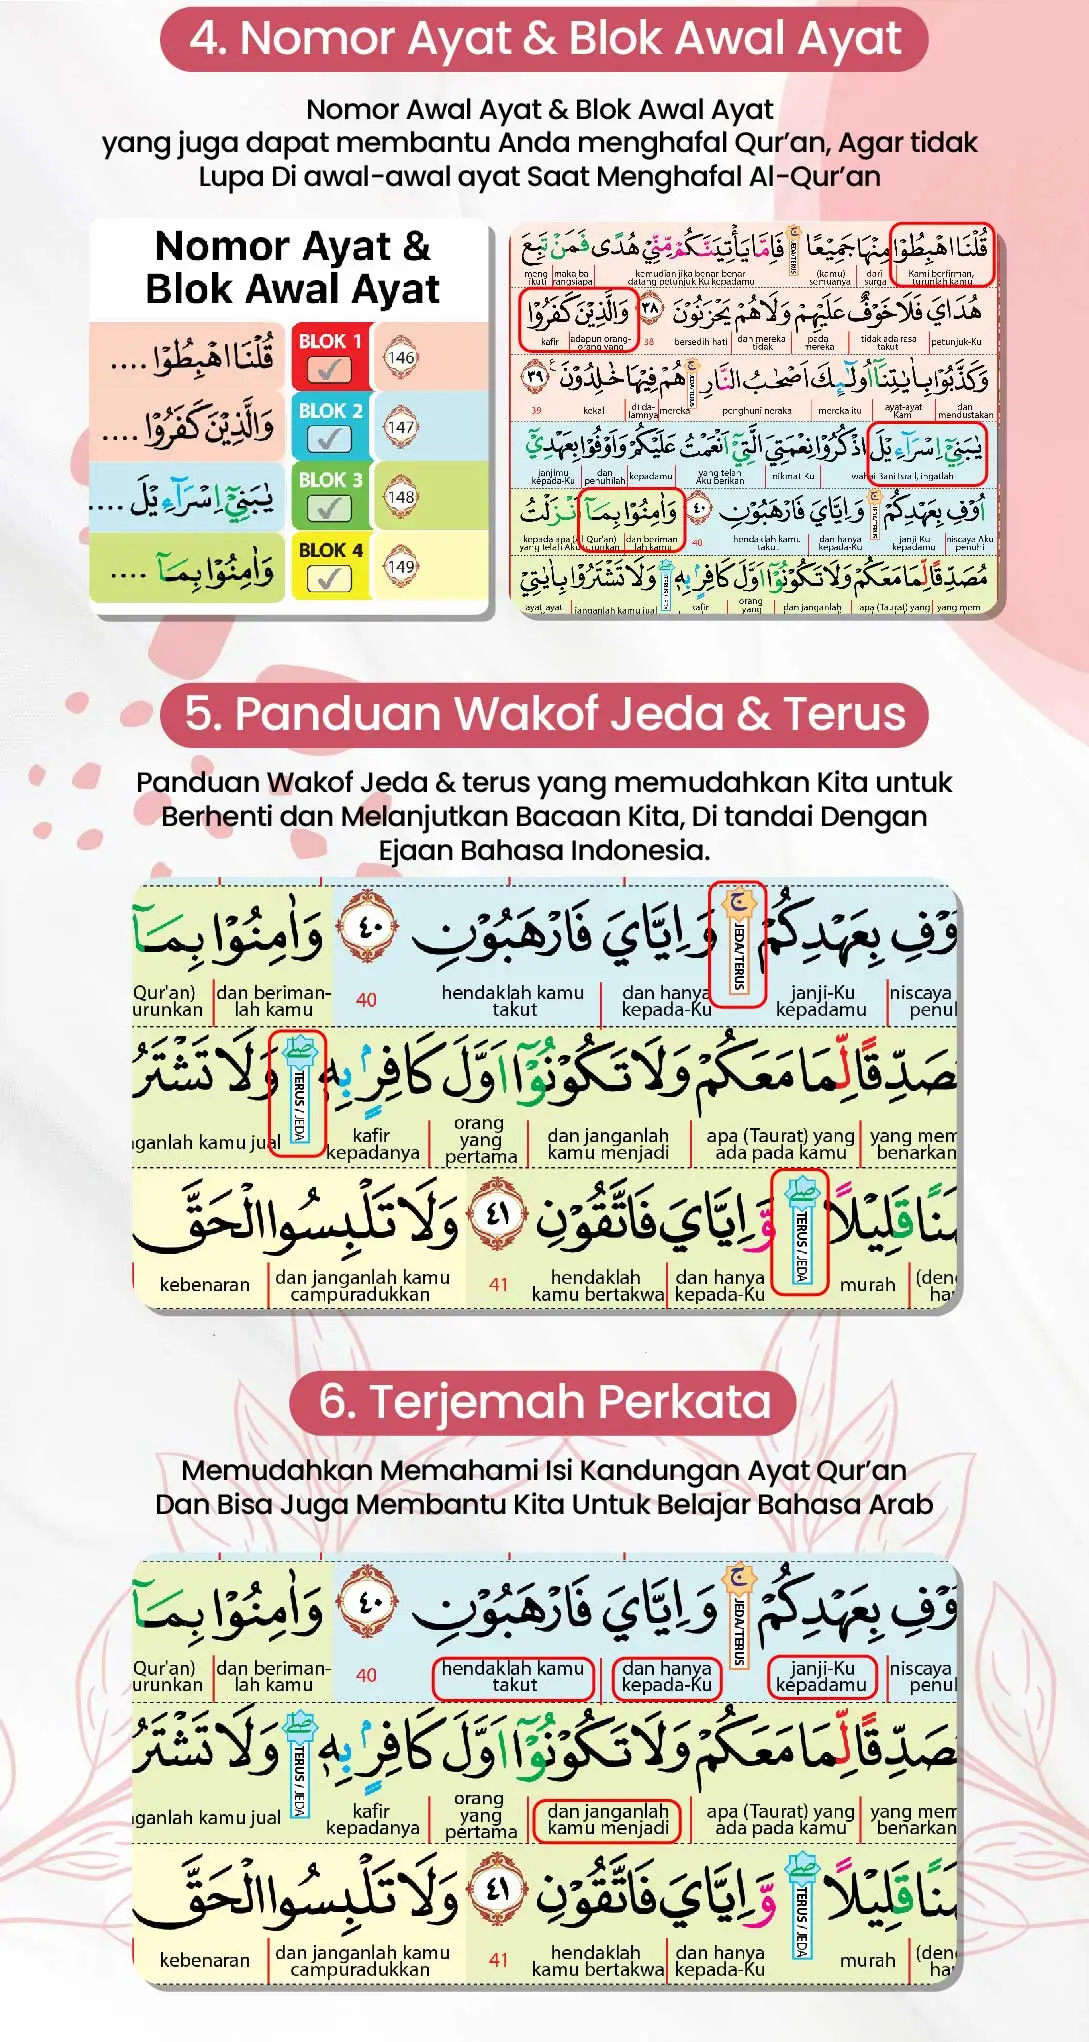 4. Nomor Ayat & Blok Awal Ayat
Nomor Awal Ayat & Blok Awal Ayat
yang juga dapat membantu Anda menghafal Qur’an, Agar tidak
Lupa Di awal-awal ayat Saat Menghafal Al-Qur’an
Nomor Ayat &
Blok Awal Ayat
قُلْنَا اهْبِطُوْا .... BLOK 1 146
وَالَّذِيْنَ كَفَرُوْا .... BLOK 2 147
يٰبَنِيْٓ اِسْرَاۤءِيْلَ .... BLOK 3 148
وَاٰمِنُوْا بِمَآ .... BLOK 4 149
قُلْنَا اهْبِطُوْا مِنْهَا جَمِيْعًا ۚ JEDA/TERUS فَاِمَّا يَأْتِيَنَّكُمْ مِّنِّيْ هُدًى فَمَنْ تَبِعَ
meng ikuti | maka ba rangsiapa | kemudian jika benar-benar datang petunjuk Ku kepadamu | (kamu) semuanya | dari surga | Kami berfirman, turunlah kamu
هُدَايَ فَلَا خَوْفٌ عَلَيْهِمْ وَلَا هُمْ يَحْزَنُوْنَ ٣٨ وَالَّذِيْنَ كَفَرُوْا
kafir | adapun orang-orang yang | 38 | bersedih hati | dan mereka tidak | pada mereka | tidak ada rasa takut | petunjuk-Ku
وَكَذَّبُوْا بِاٰيٰتِنَآ اُولٰۤىِٕكَ اَصْحٰبُ النَّارِ ۚ هُمْ فِيْهَا خٰلِدُوْنَ ٣٩
39 | kekal | di da-lamnya | mereka | penghuni neraka | mereka itu | ayat-ayat Kami | dan mendustakan
يٰبَنِيْٓ اِسْرَاۤءِيْلَ اذْكُرُوْا نِعْمَتِيَ الَّتِيْٓ اَنْعَمْتُ عَلَيْكُمْ وَاَوْفُوْا بِعَهْدِيْٓ
janjimu kepada-Ku | dan penuhilah | kepadamu | yang telah Aku berikan | nikmat Ku | wahai Bani Israil, ingatlah
اُوْفِ بِعَهْدِكُمْ ۚ وَاِيَّايَ فَارْهَبُوْنِ ٤٠ وَاٰمِنُوْا بِمَآ اَنْزَلْتُ
dan beriman lah kamu | 40 | hendaklah kamu takut | dan hanya kepada-Ku | janji Ku kepadamu | niscaya Aku penuhi
مُصَدِّقًا لِّمَا مَعَكُمْ وَلَا تَكُوْنُوْٓا اَوَّلَ كَافِرٍۢ بِهٖ ۖ وَلَا تَشْتَرُوْا بِاٰيٰتِيْ
ayat ayat | janganlah kamu jual | kafir | orang yang | dan janganlah | apa (Taurat) yang | yang mem
5. Panduan Wakof Jeda & Terus
Panduan Wakof Jeda & terus yang memudahkan Kita untuk
Berhenti dan Melanjutkan Bacaan Kita, Di tandai Dengan
Ejaan Bahasa Indonesia.
وْفِ بِعَهْدِكُمْ ۚ JEDA/TERUS وَاِيَّايَ فَارْهَبُوْنِ ٤٠ وَاٰمِنُوْا بِمَآ
Qur'an) urunkan | dan beriman-lah kamu | 40 | hendaklah kamu takut | dan hanya kepada-Ku | janji-Ku kepadamu | niscaya penul
صَدِّقًا لِّمَا مَعَكُمْ وَلَا تَكُوْنُوْٓا اَوَّلَ كَافِرٍۢ بِهٖ ۖ TERUS / JEDA وَلَا تَشْتَرُ
nganlah kamu jual | kafir kepadanya | orang yang pertama | dan janganlah kamu menjadi | apa (Taurat) yang ada pada kamu | yang mem benarkan
مَنًا قَلِيْلًا ۖ TERUS / JEDA وَّاِيَّايَ فَاتَّقُوْنِ ٤١ وَلَا تَلْبِسُوا الْحَقَّ
kebenaran | dan janganlah kamu campuradukkan | 41 | hendaklah kamu bertakwa | dan hanya kepada-Ku | murah | (den har
6. Terjemah Perkata
Memudahkan Memahami Isi Kandungan Ayat Qur’an
Dan Bisa Juga Membantu Kita Untuk Belajar Bahasa Arab
وْفِ بِعَهْدِكُمْ ۚ JEDA/TERUS وَاِيَّايَ فَارْهَبُوْنِ ٤٠ وَاٰمِنُوْا بِمَآ
Qur'an) urunkan | dan beriman-lah kamu | 40 | hendaklah kamu takut | dan hanya kepada-Ku | janji-Ku kepadamu | niscaya penul
صَدِّقًا لِّمَا مَعَكُمْ وَلَا تَكُوْنُوْٓا اَوَّلَ كَافِرٍۢ بِهٖ ۖ TERUS / JEDA وَلَا تَشْتَرُ
nganlah kamu jual | kafir kepadanya | orang yang pertama | dan janganlah kamu menjadi | apa (Taurat) yang ada pada kamu | yang mem benarkan
مَنًا قَلِيْلًا ۖ TERUS / JEDA وَّاِيَّايَ فَاتَّقُوْنِ ٤١ وَلَا تَلْبِسُوا الْحَقَّ
kebenaran | dan janganlah kamu campuradukkan | 41 | hendaklah kamu bertakwa | dan hanya kepada-Ku | murah | (den har